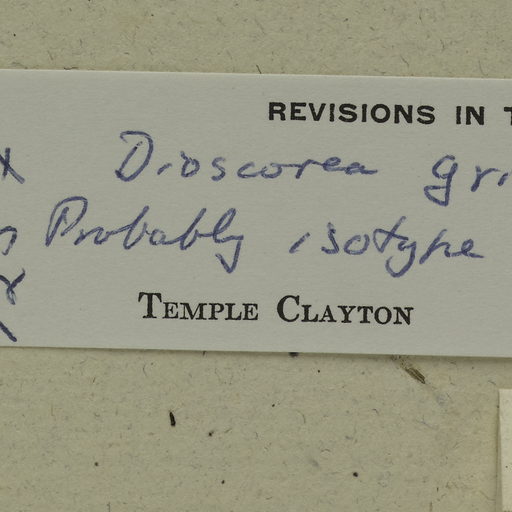 REVISIONS IN T
Dioscorea gri
Probably isotype
TEMPLE CLAYTON